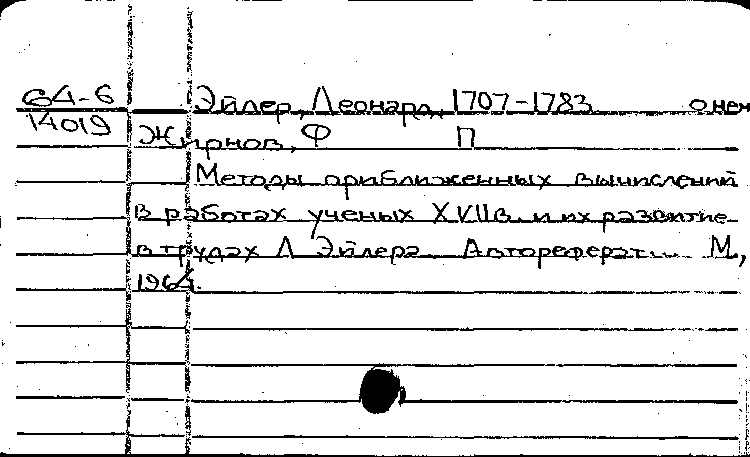 64-6 Эйлер, Леонард, 1707-1783 о нем
14019
Жирнов, Ф П
Методы приближенных вычислений
в работах ученых XVII в. и их развитие
в трудах Л Эйлера. Автореферат... М.,
1964.